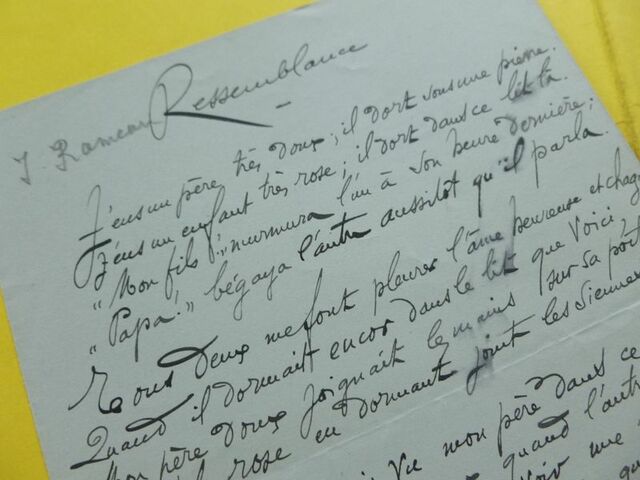 J. Rameau
Ressemblance
J'eus un père très doux ; il dort sous une pierre.
J'eus un enfant très rose ; il dort dans ce lit là.
"Mon fils !" murmura l'un à son heure dernière ;
"Papa !" bégaya l'autre aussitôt qu'il parla.
Tous deux me font pleurer l'âme heureuse et chag
Quand il dormait encor dans le lit que voici,
Mon père doux joignait les mains sur sa poit
rose en dormant joint les siennes
Vu mon père dans ce
quand l'autre
voir une